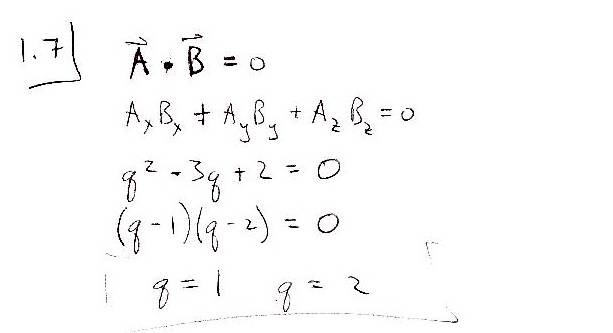 1.7
A⃗ • B⃗ = 0
AₓBₓ + A_yB_y + A_zB_z = 0
q² - 3q + 2 = 0
(q - 1)(q - 2) = 0
q = 1 q = 2